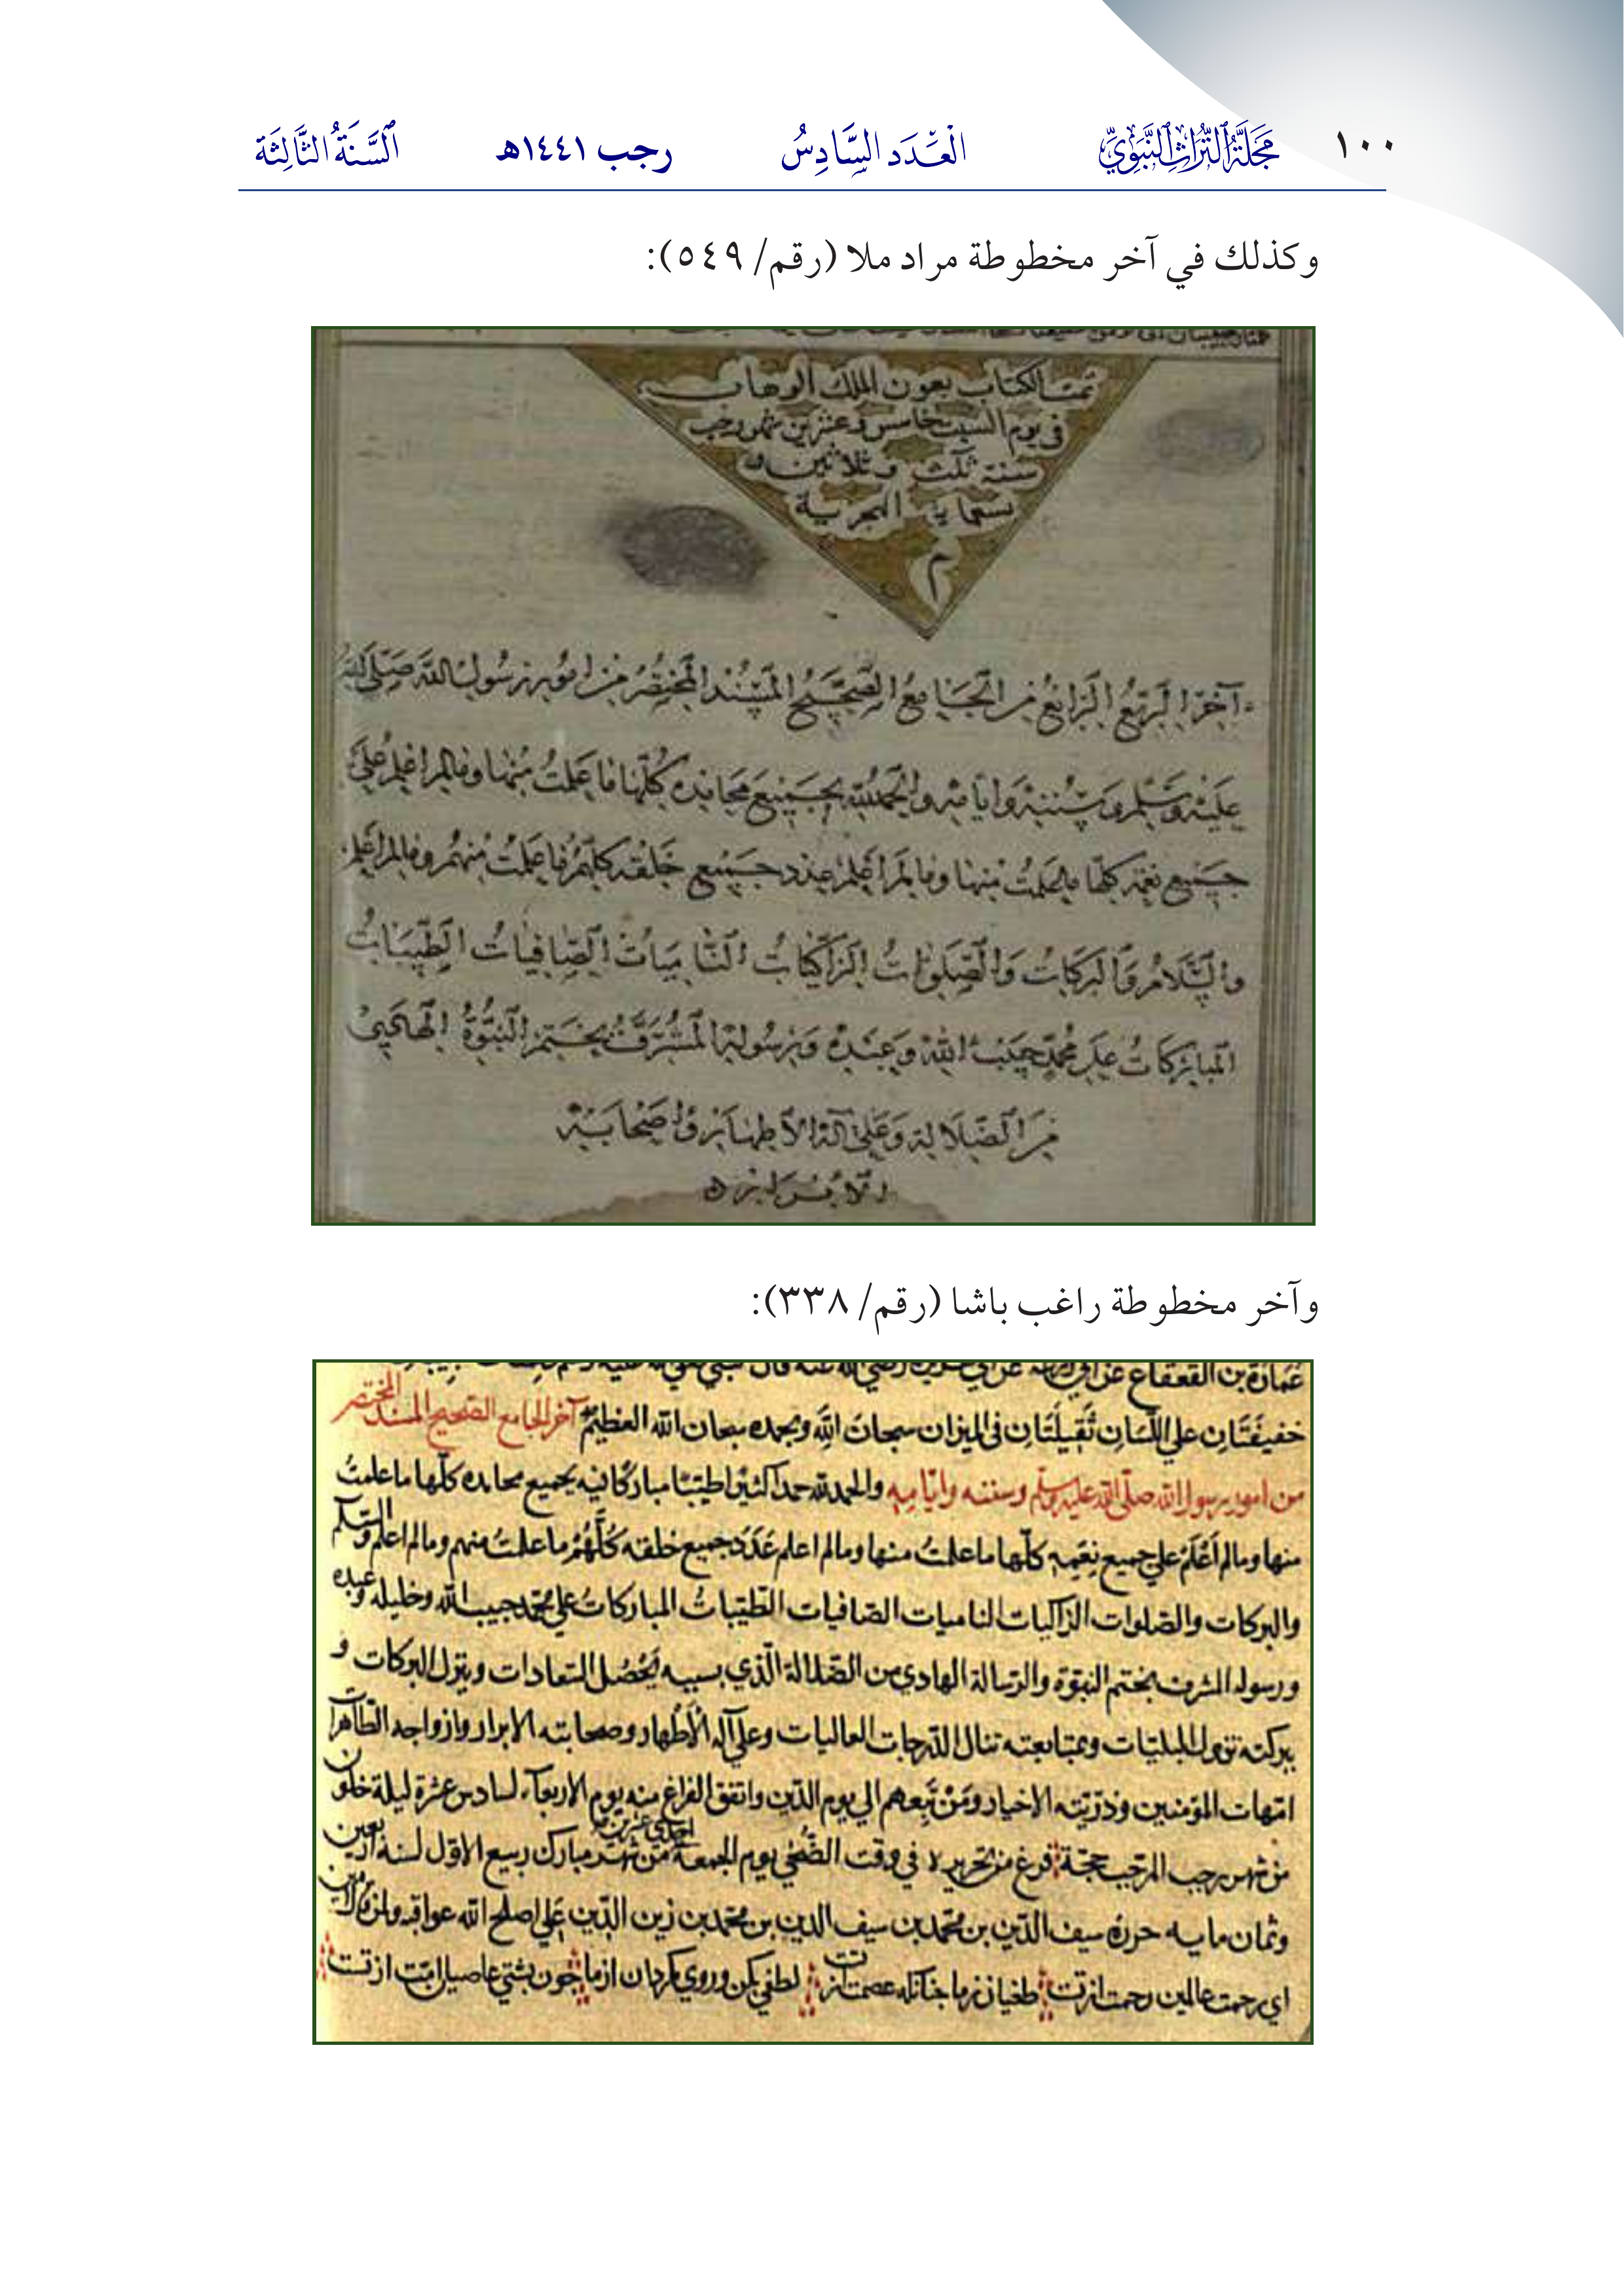 ١٠٠ مَجَلَّةُ التُّرَاثِ النَّبَوِيِّ الْعَدَد السَّادِسُ رجب ١٤٤١هـ السَّنَةُ الثَّالِثَة
وكذلك في آخر مخطوطة مراد ملا (رقم/ ٥٤٩):
تمت الكتاب بعون الملك الوهاب
في يوم السبت خامس وعشرين شهر رجب
سنة ثلث وثلاثين و
تسعماية الهجرية
م
آخر الربع الرابع من الجامع الصحيح المسند المختصر من امور رسول الله صلى الله
عليه وسلم وسننه وايامه والحمد لله بجميع محامده كلها ما علمت منها وما لم اعلم على
جميع نعمه كلها ما علمت منها وما لم اعلم عدد جميع خلقه كلهم ما علمت منهم وما لم اعلم
والسلام والبركات والصلوات الزاكيات الناميات الصافيات الطيبات
المباركات على محمد حبيب الله وعبده ورسوله المشرف بختم النبوة الهادي
من الضلالة وعلى آله الاطهار واصحابه
الابرار
وآخر مخطوطة راغب باشا (رقم/ ٣٣٨):
عمارة بن القعقاع عن ابي زرعة عن ابي هريرة رضي الله عنه قال
خفيفتان على اللسان ثقيلتان في الميزان سبحان الله وبحمده سبحان الله العظيم آخر الجامع الصحيح المسند المختصر
من امور رسول الله صلى الله عليه وسلم وسننه وايامه والحمد لله حمدا كثيرا طيبا مباركا فيه بجميع محامده كلها ما علمت
منها وما لم اعلم على جميع نعمه كلها ما علمت منها وما لم اعلم عدد جميع خلقه كلهم ما علمت منهم وما لم اعلم والسلام
والبركات والصلوات الزاكيات الناميات الصافيات الطيبات المباركات على محمد حبيب الله وخليله وعبده
ورسوله المشرف بختم النبوة والرسالة الهادي من الضلالة الذي بسببه يحصل السعادات وينزل البركات و
ببركته تزول البليات وبمتابعته تنال الدرجات العاليات وعلى آله الاطهار وصحابته الابرار وازواجه الطاهرا
امهات المؤمنين وذريته الاخيار ومن تبعهم الي يوم الدين واتفق الفراغ منه يوم الاربعاء لسادس عشرة ليلة خلون
من شهر رجب المرجب فرغ من تحريره في وقت الضحى يوم الجمعة احدى عشرين من شهر مبارك ربيع الاول لسنة اربعين
وثمان مايه حرره سيف الدين بن محمد بن سيف الدين بن محمد بن زين الدين علي اصلح الله عواقبه
اي رحمت عالمين رحمت از تست طغيان ز ما عصمت از تست لطفي بكن وروي مكردان از ما چون پشتي عاصيان امت از تست